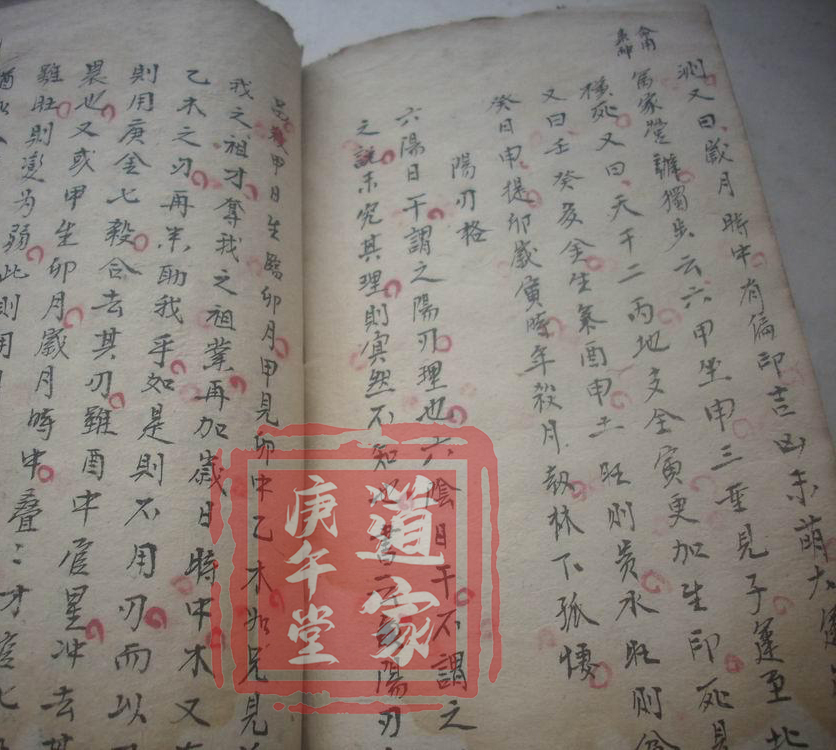 測又曰歲月時中有偏印吉凶未萌大運
萬家瑩辦獨步云六甲坐申三重見子運至北
橫死又曰天干二丙地支全寅更加生印死見
又曰壬癸多金生氣酉申土旺則貴水旺則
癸日申提卯歲寅時年殺月劫林下孤悽
陽刃格
六陽日干謂之陽刃理也六陰日干不謂之
之說未究其理則溟然不知也書云陽刃
甲日生臨卯月甲見卯中乙木如兄見
我之祖才奪我之祖業再加歲日時中木又
乙木之刃再來助我乎如是則不用刃而以
則用庚金七殺合去其刃雖酉中官星冲去其
畏也又或甲生卯月歲月時中疊〻才官七
雖旺則變为弱此則用
道家
庚午堂